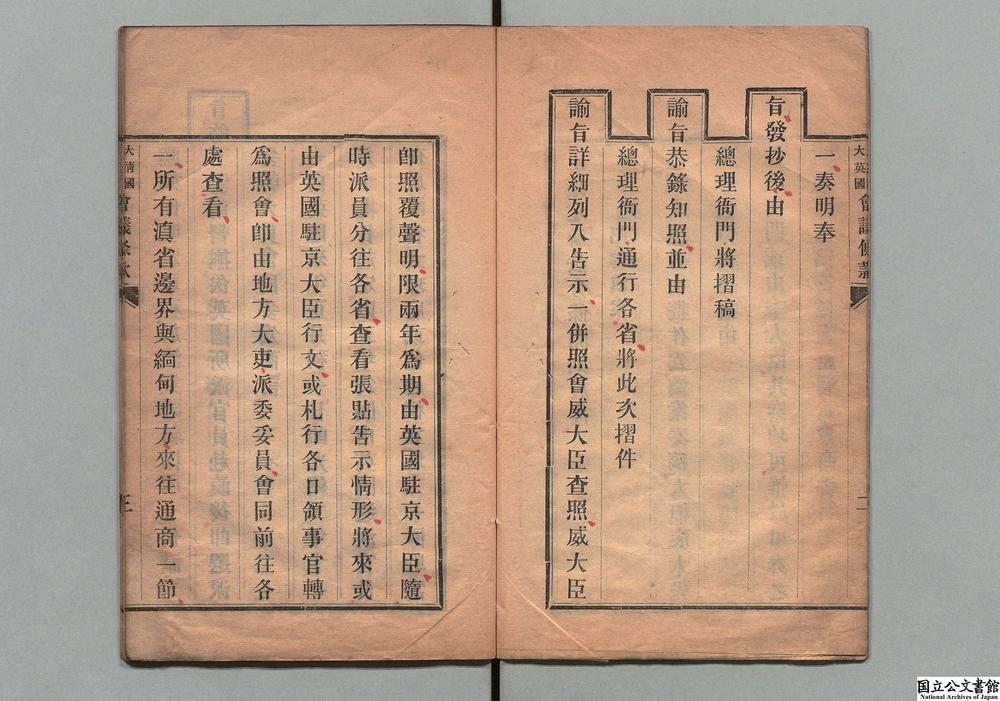 一奏明奉
旨發抄後由
總理衙門將摺稿
諭旨恭錄知照並由
總理衙門通行各省將此次摺件
諭旨詳細列入告示一併照會威大臣查照威大臣
大英國
會議條款
二
卽照覆聲明限兩年爲期由英國駐京大臣隨
時派員分往各省查看張貼告示情形將來或
由英國駐京大臣行文或札行各口領事官轉
爲照會卽由地方大吏派委妥員會同前往各
處查看
一所有滇省邊界與緬甸地方來往通商一節
大淸國
會議條款
三
国立公文書館
National Archives of Japan